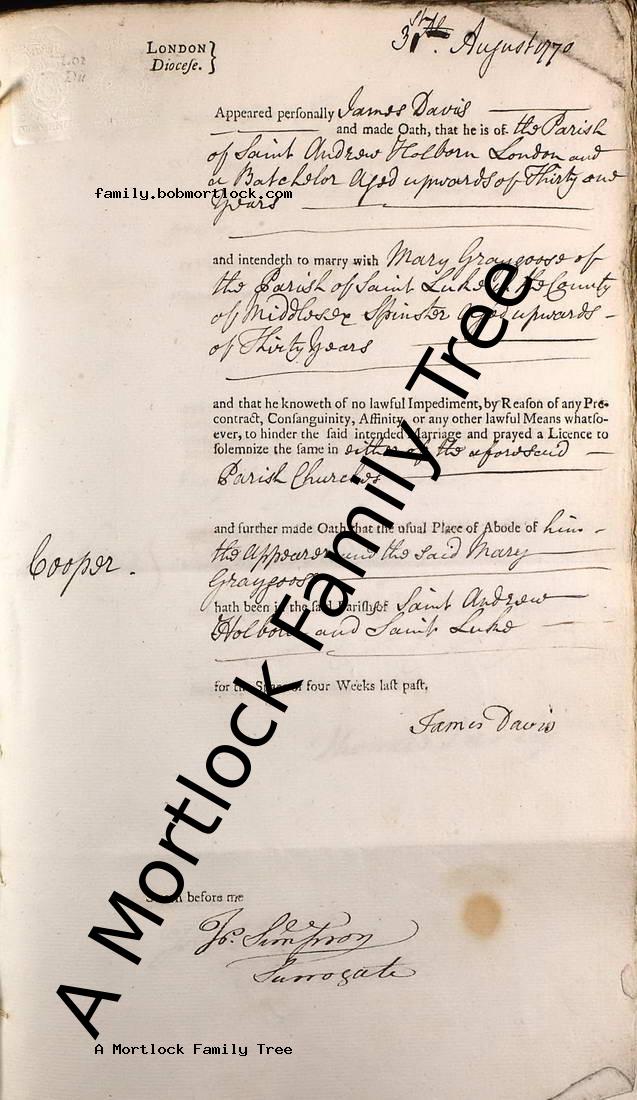 31st. August 1770
LONDON
Diocese.
Appeared personally James Davis
and made Oath, that he is of the Parish
of Saint Andrew Holborn London and
a Batchelor Aged upwards of Thirty one
family.bobmortlock.com
Years
and intendeth to marry with Mary Graygoose of
the Parish of Saint Luke in the County
of Middlesex Spinster Aged upwards
of Thirty Years
and that he knoweth of no lawful Impediment, by Reason of any Pre-
contract, Consanguinity, Affinity, or any other lawful Means whatso-
ever, to hinder the said intended Marriage and prayed a Licence to
solemnize the same in either of the aforesaid
Parish Churches
and further made Oath that the usual Place of Abode of him
Cooper.
the Appearer and the said Mary
Graygoose
hath been in the said Parishes of Saint Andrew
Holborn and Saint Luke
for the Space of four Weeks last past.
James Davis
Sworn before me
Simpson
Surrogate
A Mortlock Family Tree
A Mortlock Family Tree